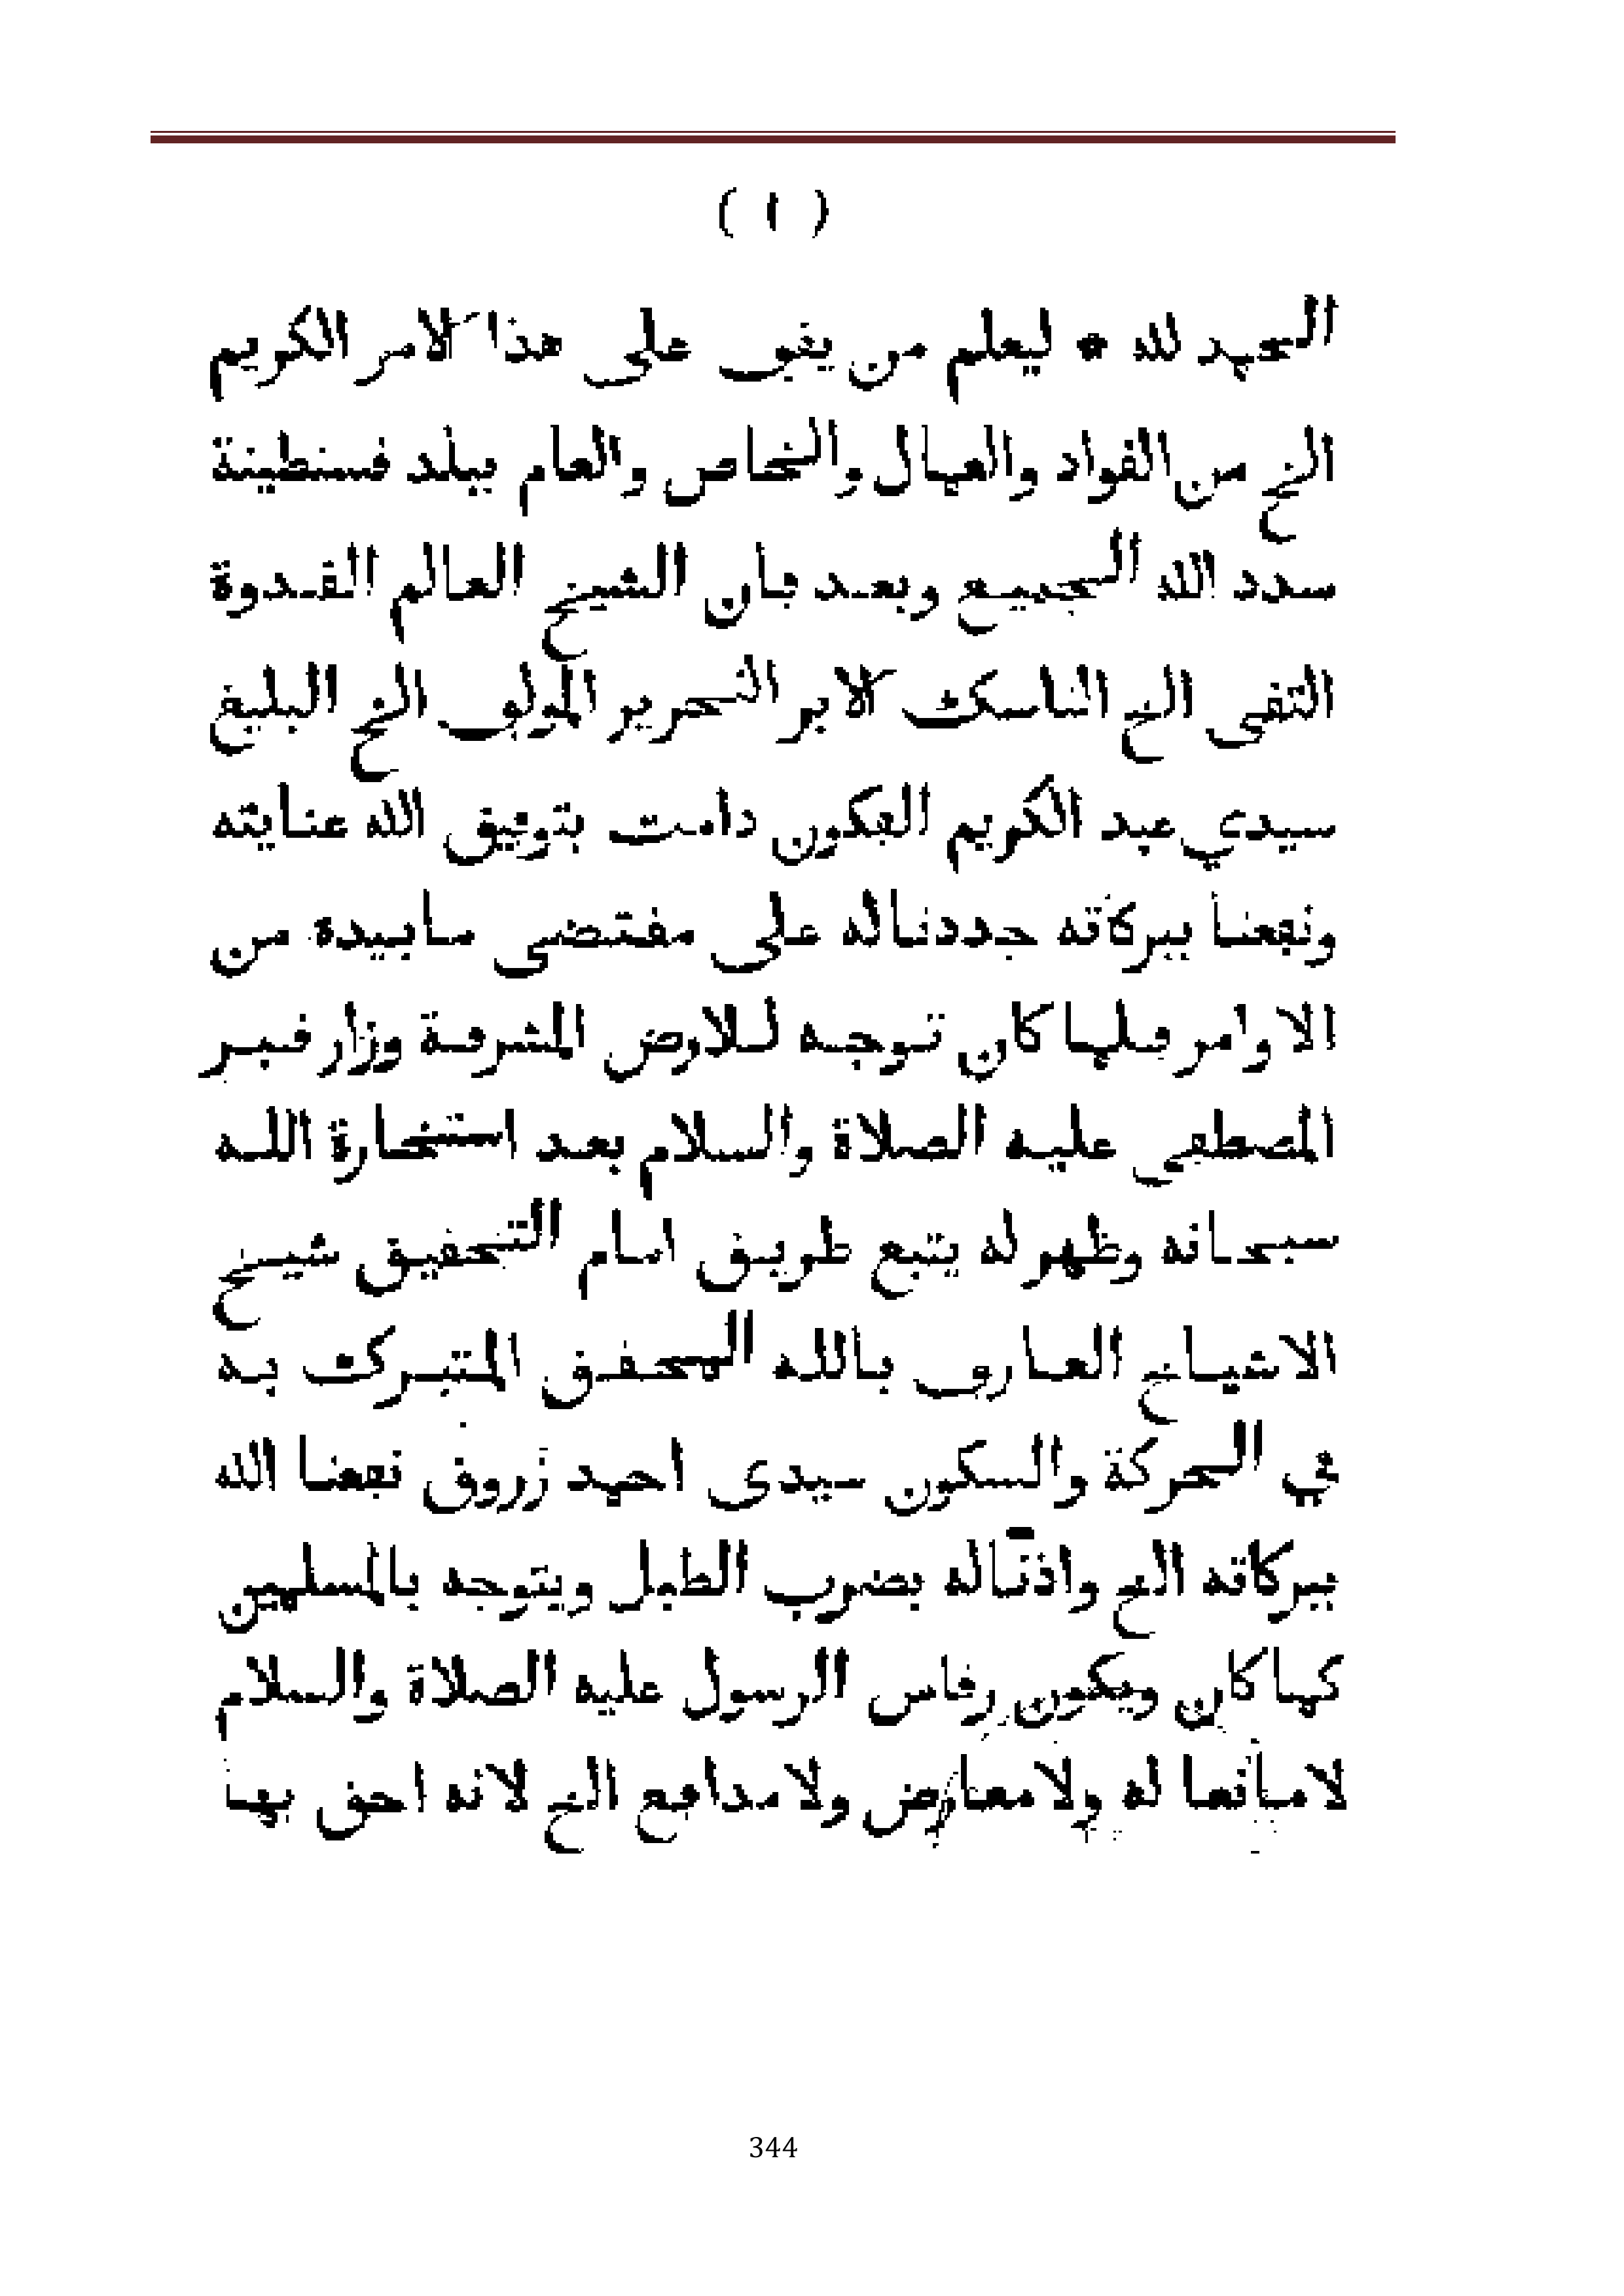 ( ١ )
الحمد لله * ليعلم من يقف على هذا الامر الكريم
الخ من القواد والعمال والخاص والعام ببلد قسنطينة
سدد الله الجميع وبعد فان الشيخ العالم القدوة
التقى الخ الناسك الابر النحرير المولف الخ البليغ
سيدي عبد الكريم الفكون دامت بتوفيق الله عنايته
ونفعنا ببركاته جددناله على مقتضى مابيده من
الاوامر فلما كان توجه للارض المشرفة وزار قبر
المصطفى عليه الصلاة والسلام بعد استخارة الله
سبحانه وظهر له يتبع طريق امام التحقيق شيخ
الاشياخ العارف بالله المحقق المتبرك به
في الحركة والسكون سيدى احمد زروق نفعنا الله
ببركاته الخ واذنّاله بضرب الطبل ويتوجه بالمسلمين
كما كان ويكون رفاس الرسول عليه الصلاة والسلام
لامانعا له ولا معارض ولا مدافع الخ لانه احق بها
344